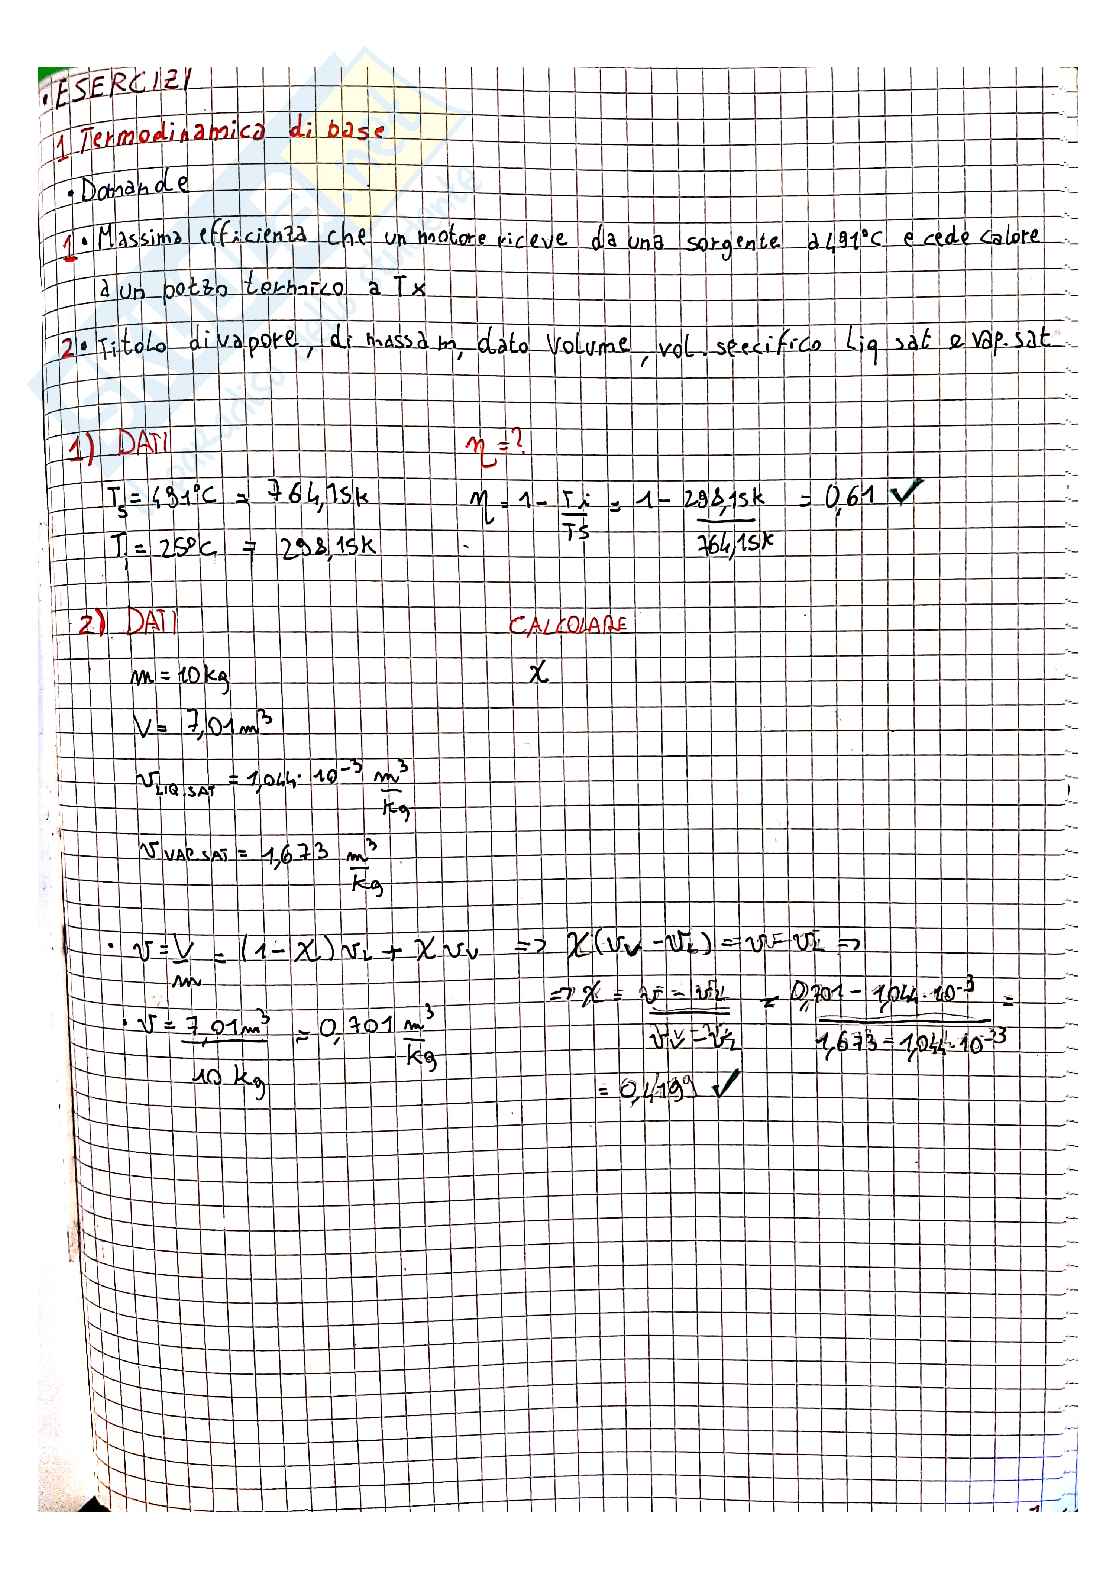 • ESERCIZI
1 Termodinamica di base
• Domande
1 • Massima efficienza che un motore riceve da una sorgente a 491°C e cede calore
a un pozzo termico a Tx
2 • Titolo di vapore, di massa m, dato volume, vol. specifico liq sat e vap. sat
1) DATI η = ?
Ts = 491°C = 764,15K η = 1 - Ti/Ts = 1 - 298,15K/764,15K = 0,61 ✓
Ti = 25°C = 298,15K
2) DATI CALCOLARE
m = 10 kg x
V = 7,01 m³
v LIQ.SAT = 1,044 · 10⁻³ m³/kg
v VAP.SAT = 1,673 m³/kg
• v = V/m = (1 - x) vL + x vv => x (vv - vL) = v - vL =>
=> x = v - vL / vv - vL = 0,701 - 1,044 · 10⁻³ / 1,673 - 1,044 · 10⁻³ =
• v = 7,01 m³ / 10 kg = 0,701 m³/kg
= 0,4199 ✓
1